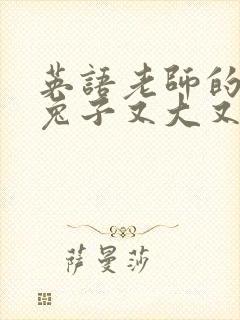 英語老師的
兔子又大又
萨曼莎